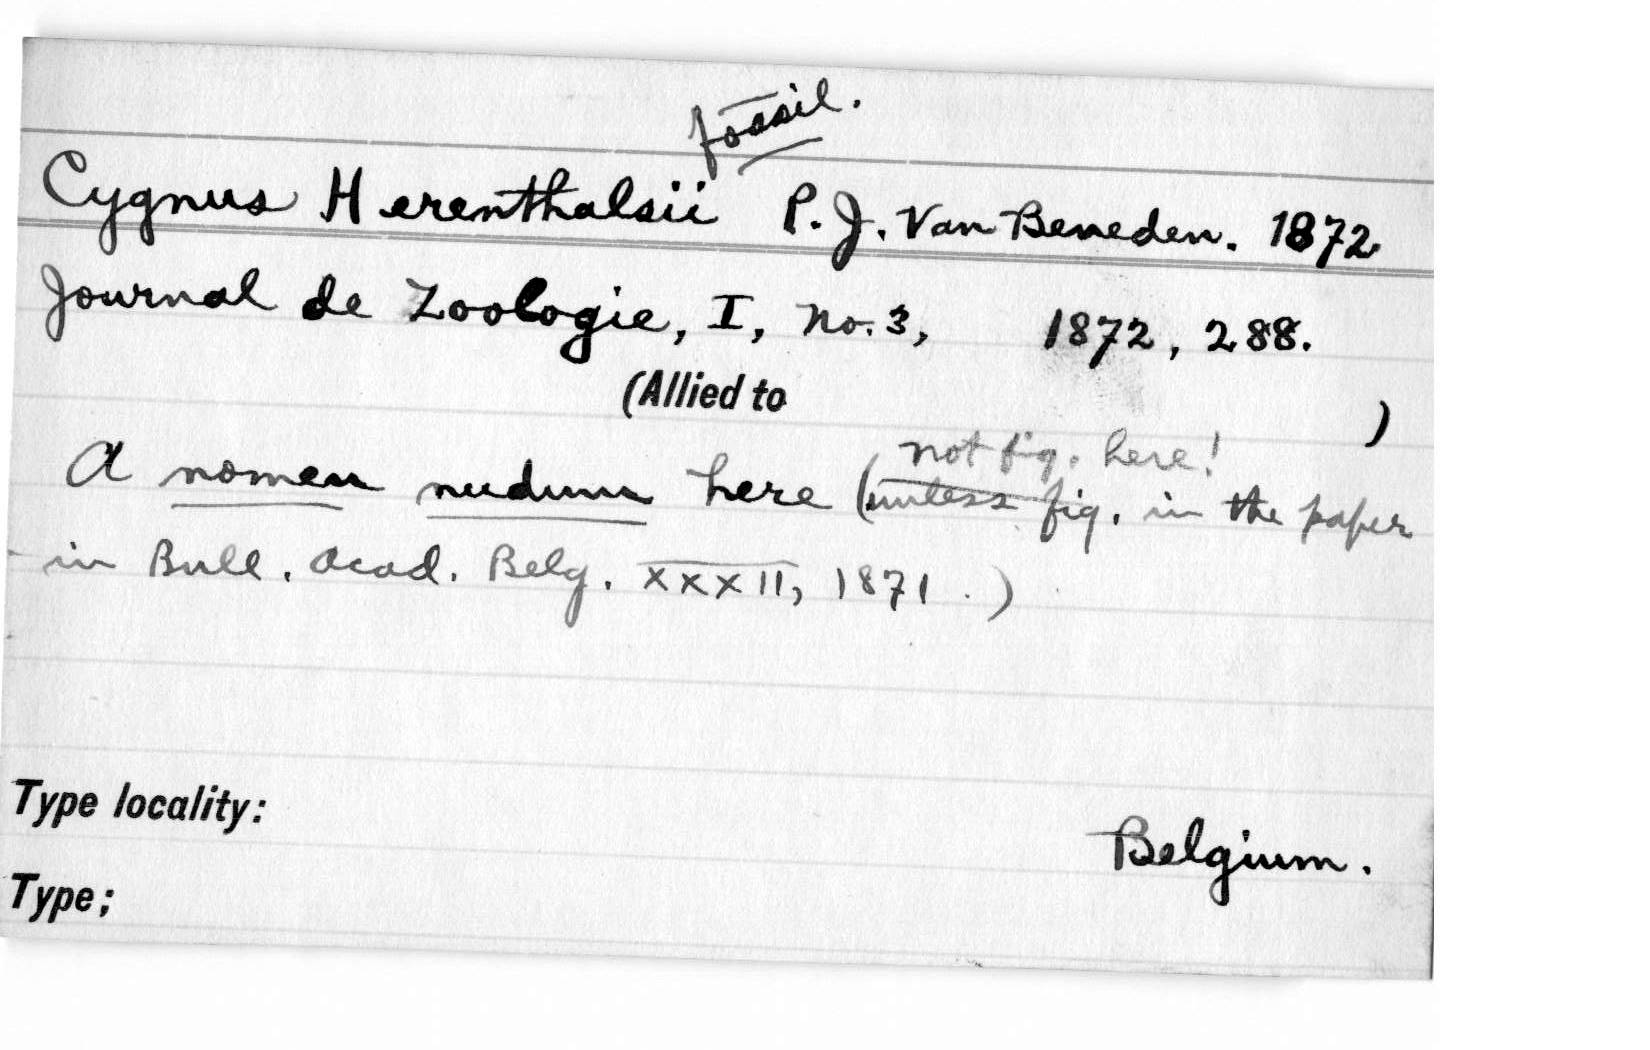 fossil.
Cygnus Herenthalsii P. J. Van Beneden. 1872
Journal de Zoologie, I, no. 3, 1872, 288.
(Allied to )
not fig. here!
A nomen nudum here (unless fig. in the paper
in Bull. Acad. Belg. XXXII, 1871.)
Type locality:
Belgium.
Type;